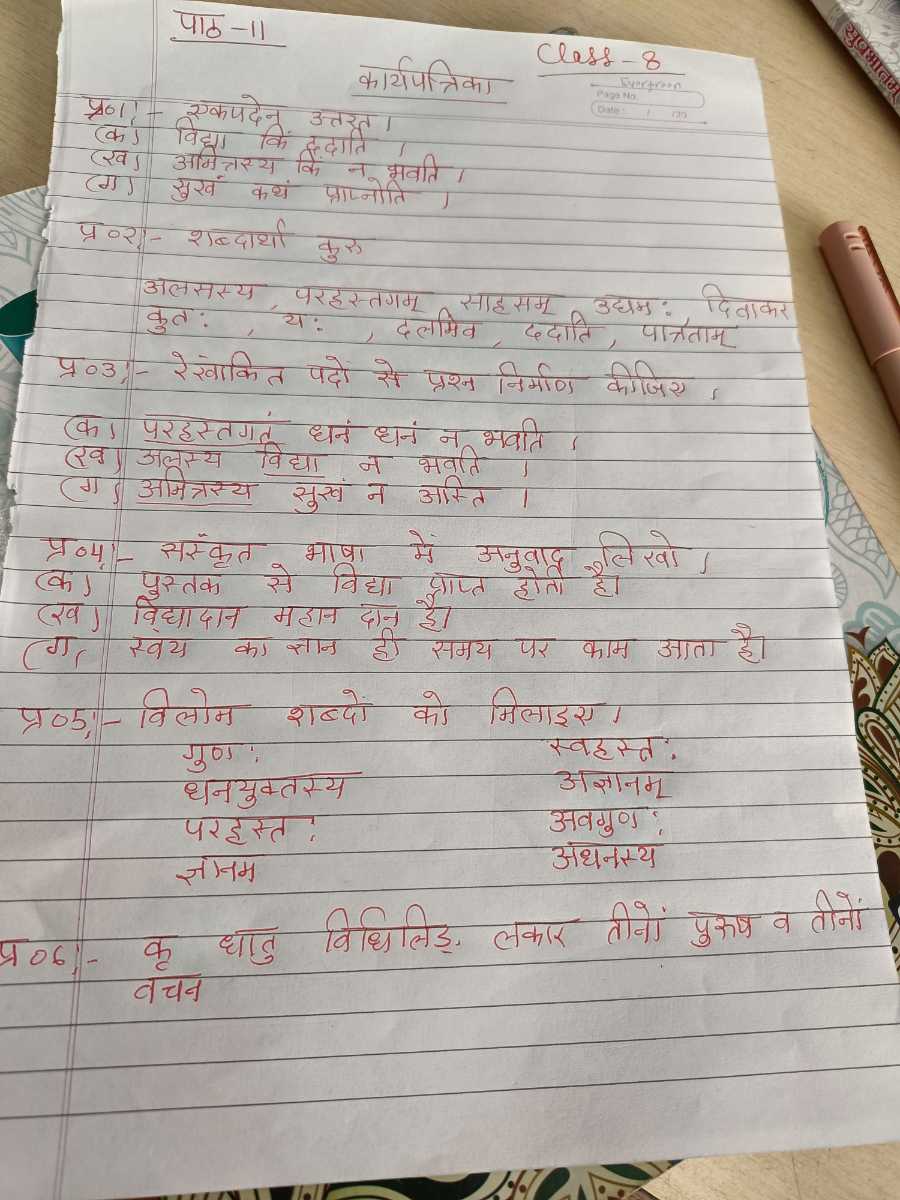 पाठ -11
Class - 8
कार्यपत्रिका
Evergreen
Page No.
Date : / /20
प्र०1:- एकपदेन उत्तरत ।
(क) विद्या किं ददाति ।
(ख) अमित्रस्य किं न भवति ।
(ग) सुखं कथं प्राप्नोति ।
प्र०२:- शब्दार्था कुरु
अलसस्य, परहस्तगम् साहसम् उद्यम:, दिवाकर
कुत: , य: , दलमिव, ददाति, पात्रताम्
प्र०3:- रेखांकित पदों से प्रश्न निर्माण कीजिए ।
(क) परहस्तगतं धनं धनं न भवति ।
(ख) अलस्य विद्या न भवति ।
(ग) अमित्रस्य सुखं न अस्ति ।
प्र०4:- संस्कृत भाषा में अनुवाद लिखो ।
(क) पुस्तक से विद्या प्राप्त होती है।
(ख) विद्यादान महान दान है।
(ग) स्वय का ज्ञान ही समय पर काम आता है।
प्र०5:- विलोम शब्दों को मिलाइए ।
गुण: स्वहस्त:
धनयुक्तस्य अज्ञानम्
परहस्त: अवगुण:
ज्ञानम अधनस्य
प्र०6:- कृ धातु विधिलिड्. लकार तीनों पुरुष व तीनों
वचन
सुवभातम्